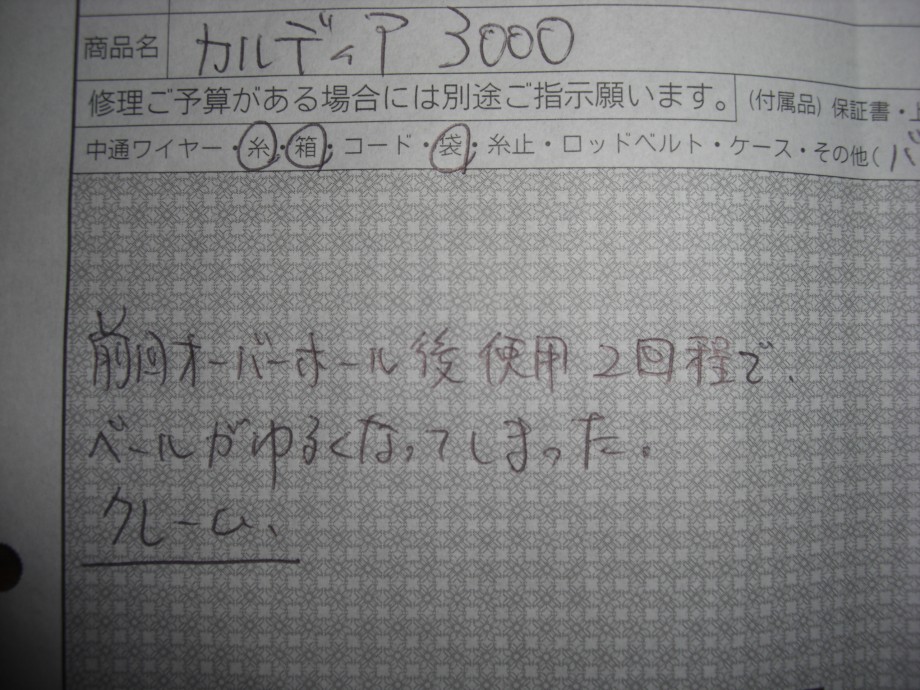 商品名 カルディア 3000
修理ご予算がある場合には別途ご指示願います。 (付属品) 保証書・
中通ワイヤー・糸・箱・コード・袋・糸止・ロッドベルト・ケース・その他(
前回オーバーホール後 使用 2回程で、
ベールがゆるくなってしまった。
クレーム、